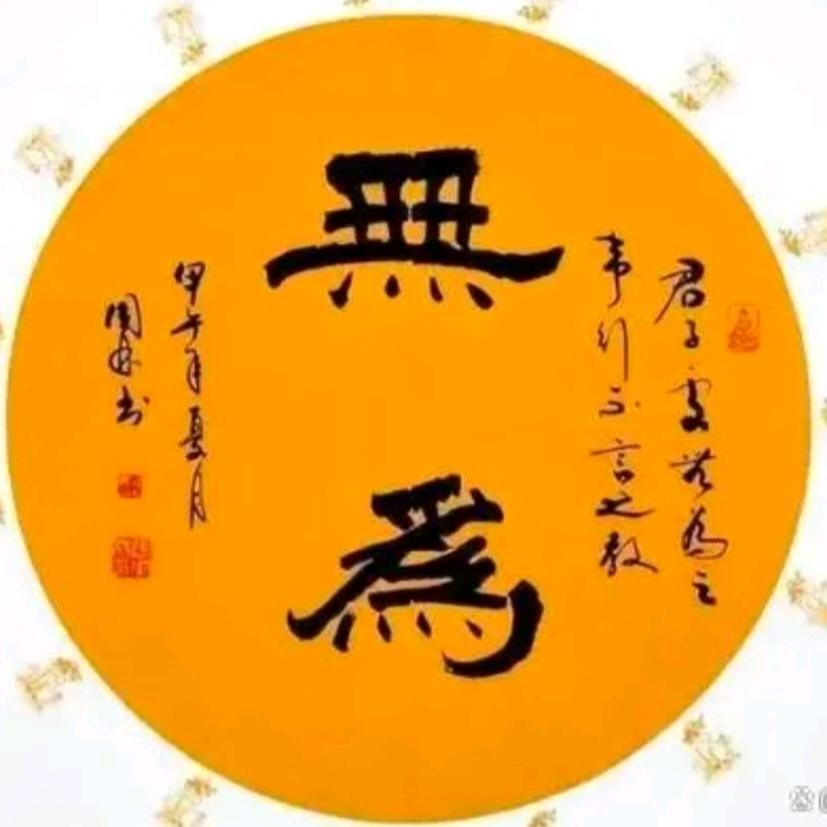 無為
君子處無為之
事行不言之教
甲午年夏月
國林书